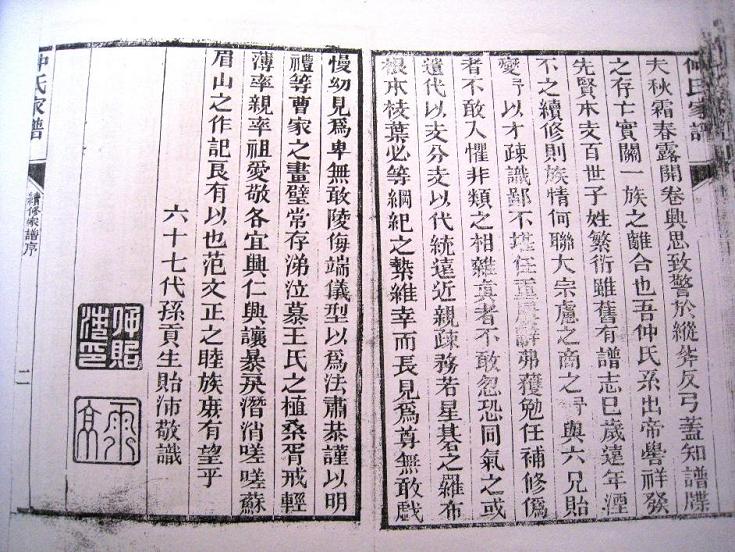 仲氏家譜
夫秋霜春露開卷興思致警於縱斧反弓蓋知譜牒
之存亡實關一族之離合也吾仲氏系出帝嚳祥發
先賢本支百世子姓繁衍雖舊有譜志已歲遠年湮
不之續修則族情何聯大宗慮之商之予與六兄貽
變予以才疎識鄙不堪任重屢辭弗獲勉任補修僞
者不敢入懼非類之相雜真者不敢忽恐同氣之或
遺代以支分支以代統遠近親疎務若星碁之羅布
根本枝葉必等綱紀之縶維幸而長見爲尊無敢戲
慢幼見爲卑無敢陵侮端儀型以爲法肅恭謹以明
禮等曹家之畫壁常存涕泣慕王氏之植桑胥戒輕
薄率親率祖愛敬各宜興仁興讓暴戾潛消嗟嗟蘇
眉山之作記良有以也范文正之睦族庶有望乎
六十七代孫貢生貽沛敬識
仲氏家譜
續修家譜序
二